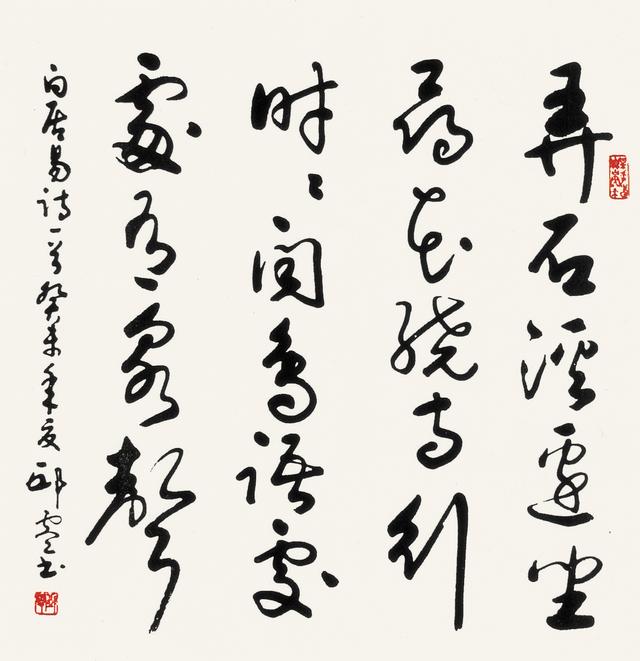 弄石溪邊坐
尋花繞寺行
時〻聞鳥語處
處有泉聲
白居易詩一首癸未年夏邱零書